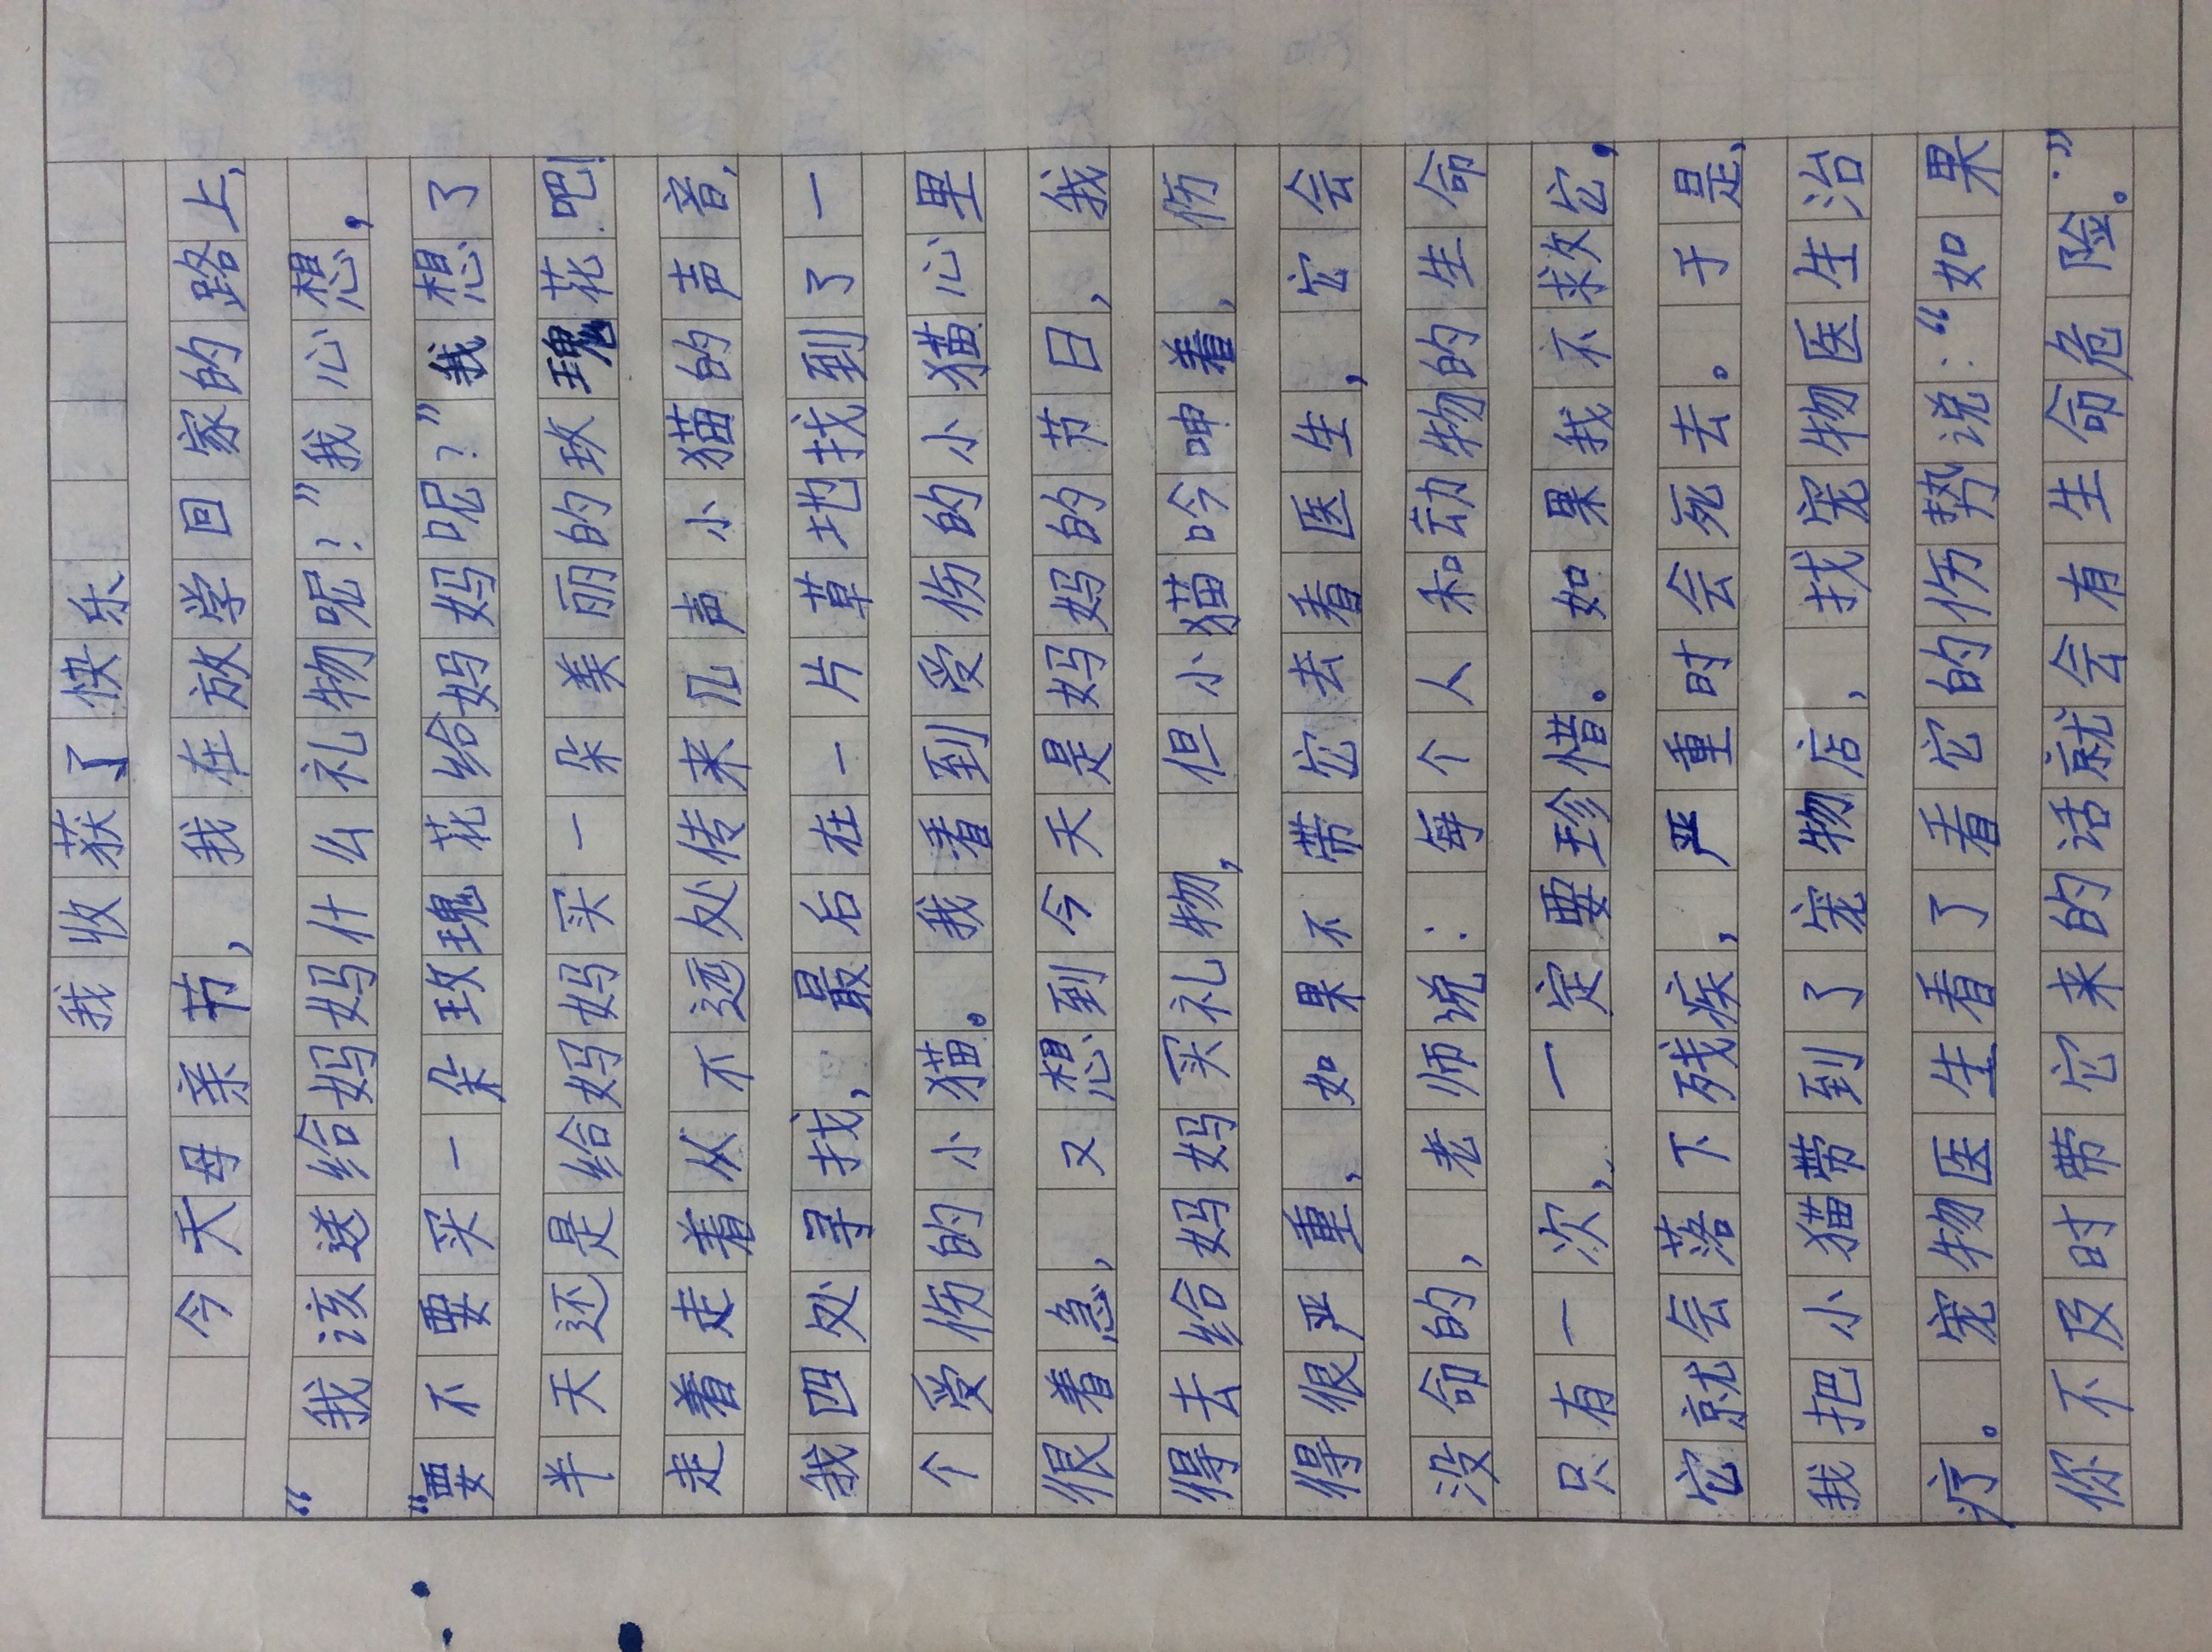 我收获了快乐
今天母亲节，我在放学回家的路上，
“我该送给妈妈什么礼物呢？”我心想，
“要不要买一朵玫瑰花给妈妈呢？”我想了
半天还是给妈妈买一朵美丽的玫瑰花吧！
走着走着从不远处传来几声小猫的声音，
我四处寻找，最后在一片草地找到了一
个受伤的小猫。我看到受伤的小猫心里
很着急，又想到今天是妈妈的节日，我
得去给妈妈买礼物，但小猫吟呻着，伤
得很严重，如果不带它去看医生，它会
没命的，老师说：每个人和动物的生命
只有一次，一定要珍惜。如果我不救它，
它就会落下残疾，严重时会死去。于是，
我把小猫带到了宠物店，找宠物医生治
疗。宠物医生看了看它的伤势说：“如果
你不及时带它来的话就会有生命危险。”